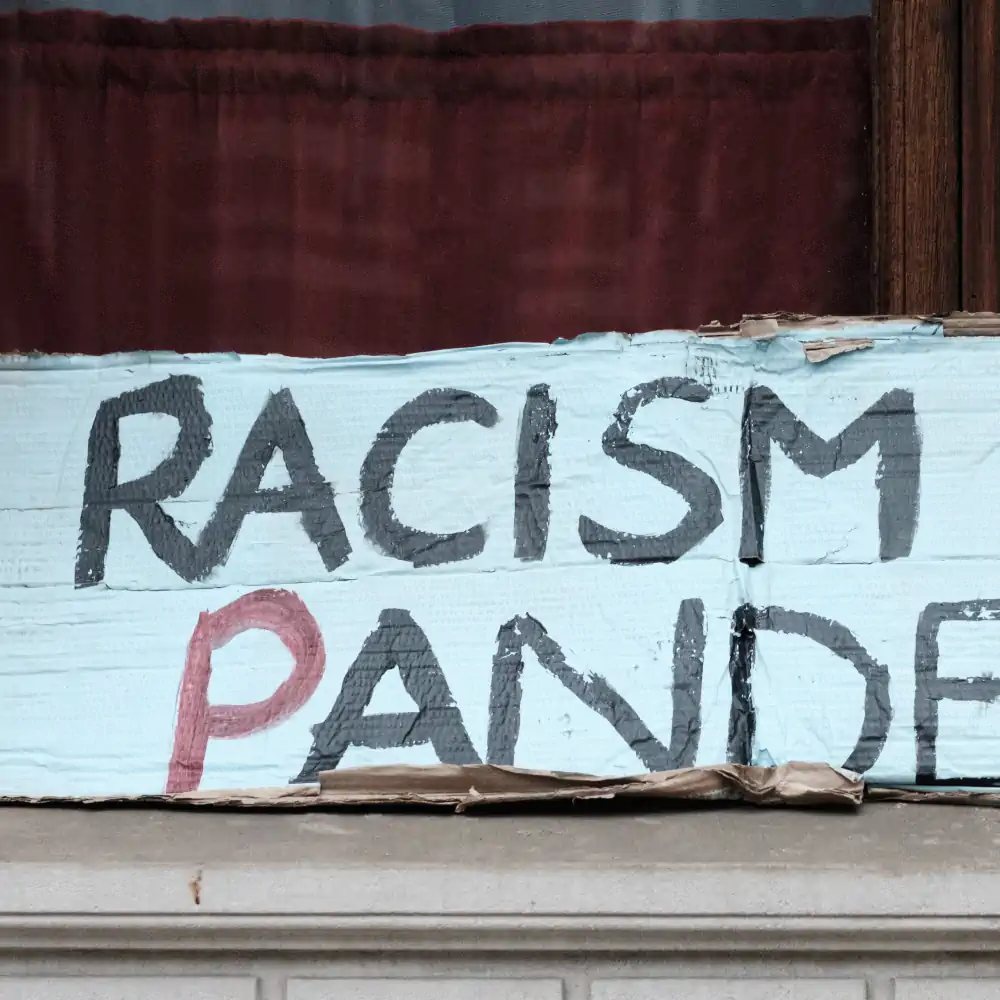 RACISM
PANDE